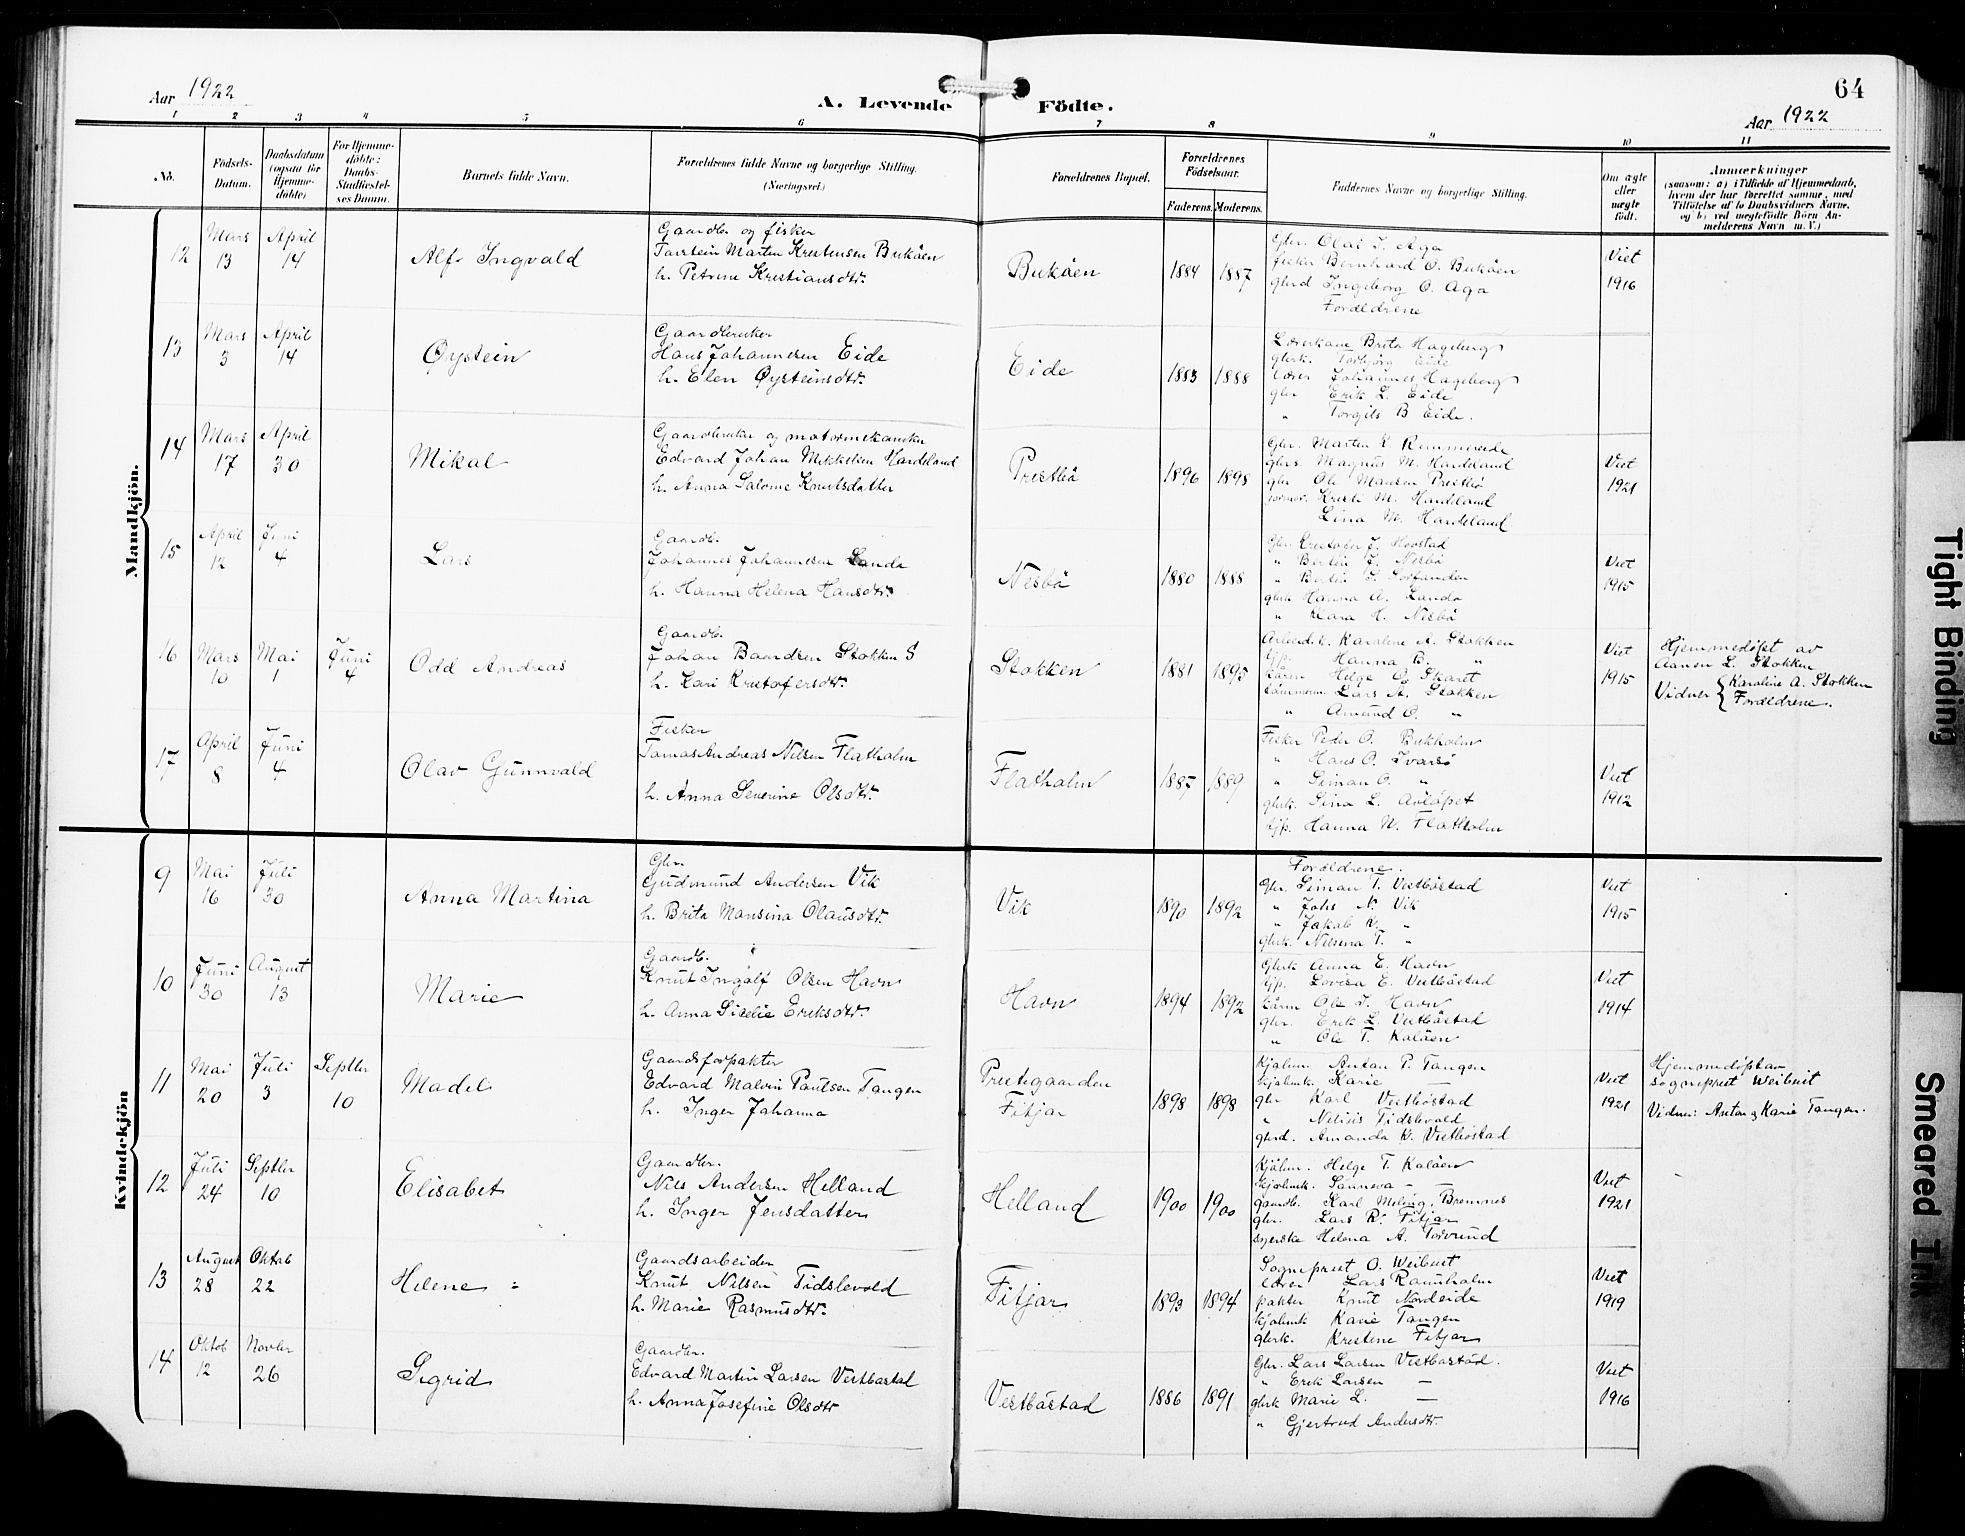 64
Aar 1922
A. Levende Födte.
Aar 1922
1 2 3 4 5 6 7 8 9 10 11
No.
Födsels-
Datum.
Daabsdatum
(ogsaa for
Hjemme-
döbte)
For Hjemme-
döbte:
Daabs-
Stadfæstel-
ses Datum.
Barnets fulde Navn.
Forældrenes fulde Navne og borgerlige Stilling.
(Næringsvei.)
Forældrenes Bopæl.
Forældrenes
Födselsaar.
Faderens. Moderens.
Faddernes Navne og borgerlige Stilling.
Om ægte
eller
uægte
født.
Anmærkninger
(saasom: a) i Tilfælde af Hjemmedaab,
hvem der har forrettet samme, med
Tilföielse af to Daabsvidners Navne,
og b) ved uægtefödte Börn An-
melderens Navn m. V.)
Mandkjön.
12
Mars
13
April
14
Alf Ingvald
Gaardbr og fisker
Torstein Marten Krestensen Bukøen
h. Petrine Kristiansdtr.
Bukøen
1884 1887
Gbr. Olai J. Aga
fisker Bernhard O. Bukøen
gbrd Ingeborg O. Aga
Forældrene
Viet
1916
13
Mars
3
April
14
Øystein
Gaardbruker
Hans Johannesen Eide
h. Elen Øysteinsdtr.
Eide
1883 1888
Lærerkone Brita Hageberg
gbrk. Torbjørg Eide
lærer Johannes Hageberg
gbr Erik L. Eide
" Torgils B Eide.
14
Mars
17
April
30
Mikal
Gaardbruker og motormekaniker
Edvard Johan Mikkelsen Hardeland
h. Anna Salome Knutsdatter
Prestbø
1896 1898
Gbr. Marten K. Rimmereide
gbrs. Magnus M. Hardeland
gbr Ole Mansen Prestbø
Kristi M. Hardeland
Lina M. Hardeland
Viet
1921
15
April
12
Juni
4
Lars
Gaardb.
Johannes Johannesen Landa
h. Hanna Helena Hansdtr.
Nesbø
1880 1888
Gbr Kristofer J. Hovstad
" Bertin J. Nesbø
" Bertin J.
gbrk Hanna A. Landa
" Klara H. Nesbø
Viet
1915
16
Mars
10
Mai
1
Juni
4
Odd Andreas
Gaardb.
Johan Baardsen Stokken S
h. Kari Kristofersdtr.
Stokken
1881 1895
Arbeid.k. Karoline A. Stokken
tjp. Hanna B. "
kårm Helge O. Skaret
tømmerm. Lars A. Stokken
" Amund O. "
Viet
1915
Hjemmedøpt av
Aanen L. Stokken
Vidner { Karoline A. Stokken
Forældrene.
17
April
8
Juni
4
Olav Gunnvald
Fisker
Tomas Andreas Nilsen Flatholm
h. Anna Severine Olsdtr.
Flatholm
1887 1889
Fisker Peder O. Bukholm
" Hans O. Ivarsø
" Siman O. "
gbrk. Sina L. Aaløpet
tjp. Hanna N. Flatholm
Viet
1912
Kvindekjön
9
Mai
16
Juli
30
Anna Martina
Gbr.
Gudmund Andersen Vik
h. Brita Mansina Olausdtr.
Vik
1890 1892
Forældrene.
Gbr. Siman T. Vestbøstad
" Johs N. Vik
" Jakob K. "
gbrk. Nilsina T. "
Viet
1915
10
Juni
30
August
13
Marie
Gaardb.
Knut Ingolf Olsen Havn
h. Anna Sicelie Eriksdtr.
Havn
1894 1892
Gbrk Anna E. Havn
tjp. Lovisa E. Vestbøstad
kårm Ole J. Havn
gbr. Erik L. Vestbøstad
" Ole T. Kaløen
Viet
1914
11
Mai
20
Juli
3
Septbr
10
Madel
Gaardsforpakter
Edvard Malvin Paulsen Tangen
h. Inger Johanna
Prestegaarden
Fitjar
1898 1898
Kjøbm. Anton P. Tangen
kjøbmk. Karie —
gbr Karl Vestbøstad
" Nelius Tidslevold
gbrd. Amanda K. Vestbøstad
Viet
1921
Hjemmedøpt av
sogneprest Weibust
Vidner: Anton og Karie Tangen.
12
Juli
24
Septbr
10
Elisabet
Gaardbr.
Nils Andersen Helland
h. Inger Jensdatter
Helland
1900 1900
Kjøbm. Helge T. Kaløen
kjøbmk. Sanneva — —
gaardb. Karl Meling, Bremnes
gbr. Lars R. Fitjar
syerske Helena A. Torvund
Viet
1921
13
August
28
Oktob
22
Helene
Gaardsarbeider
Knut Nilsen Tidslevold
h. Marie Rasmusdtr.
Fitjar
1893 1894
Sogneprest O. Weibust
lærer Lars Raunholm
pakter Knut Nordeide
kjøbmk Karie Tangen
gbrk. Kristine Fitjar
Viet
1919
14
Oktob
12
Novbr
26
Sigrid
Gaardbr.
Edvard Martin Larsen Vestbøstad
h. Anna Josefine Olsdtr
Vestbøstad
1886 1891
Gbr. Lars Larsen Vestbøstad.
" Erik Larsen —
gbrk Marie L. —
" Gjertrud Andersdtr.
Viet
1916
Tight Binding
Smeared Ink